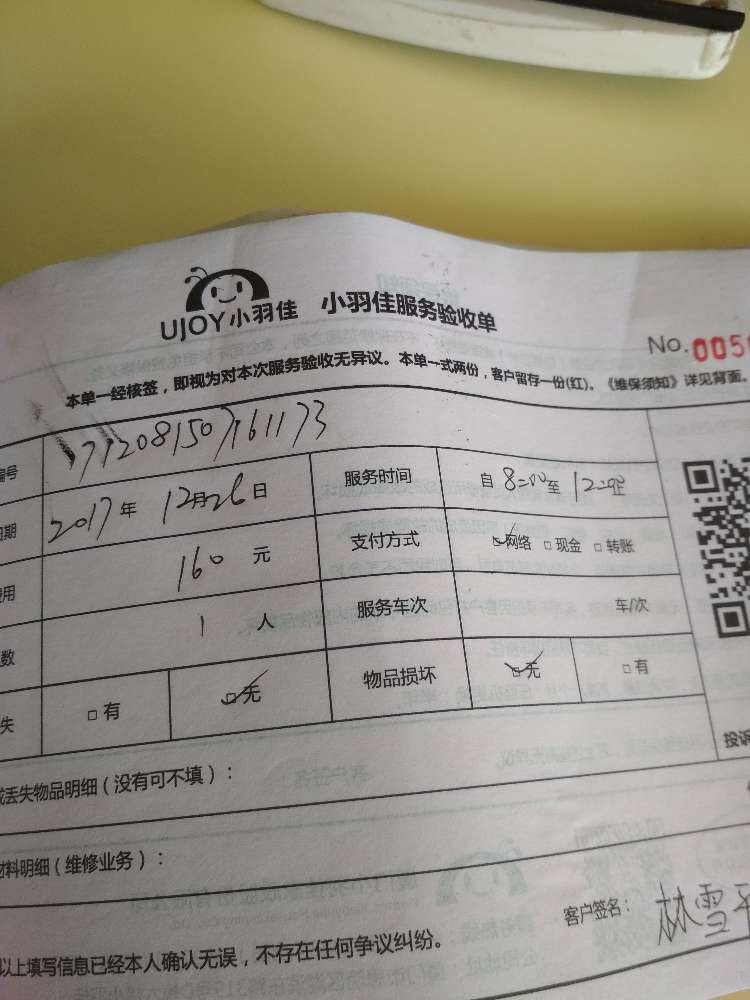 UJOY小羽佳 小羽佳服务验收单
No. 005
本单一经核签，即视为对本次服务验收无异议。本单一式两份，客户留存一份(红)。《维保须知》详见背面。
编号 1712081507161173
日期 2017年 12月26日 服务时间 自 8:00 至 12:00 止
费用 160 元 支付方式 ☑网络 □现金 □转账
数 1 人 服务车次 车/次
失 □有 ☑无 物品损坏 ☑无 □有
投诉
或丢失物品明细（没有可不填）：
材料明细（维修业务）：
客户签名： 林雪
以上填写信息已经本人确认无误，不存在任何争议纠纷。